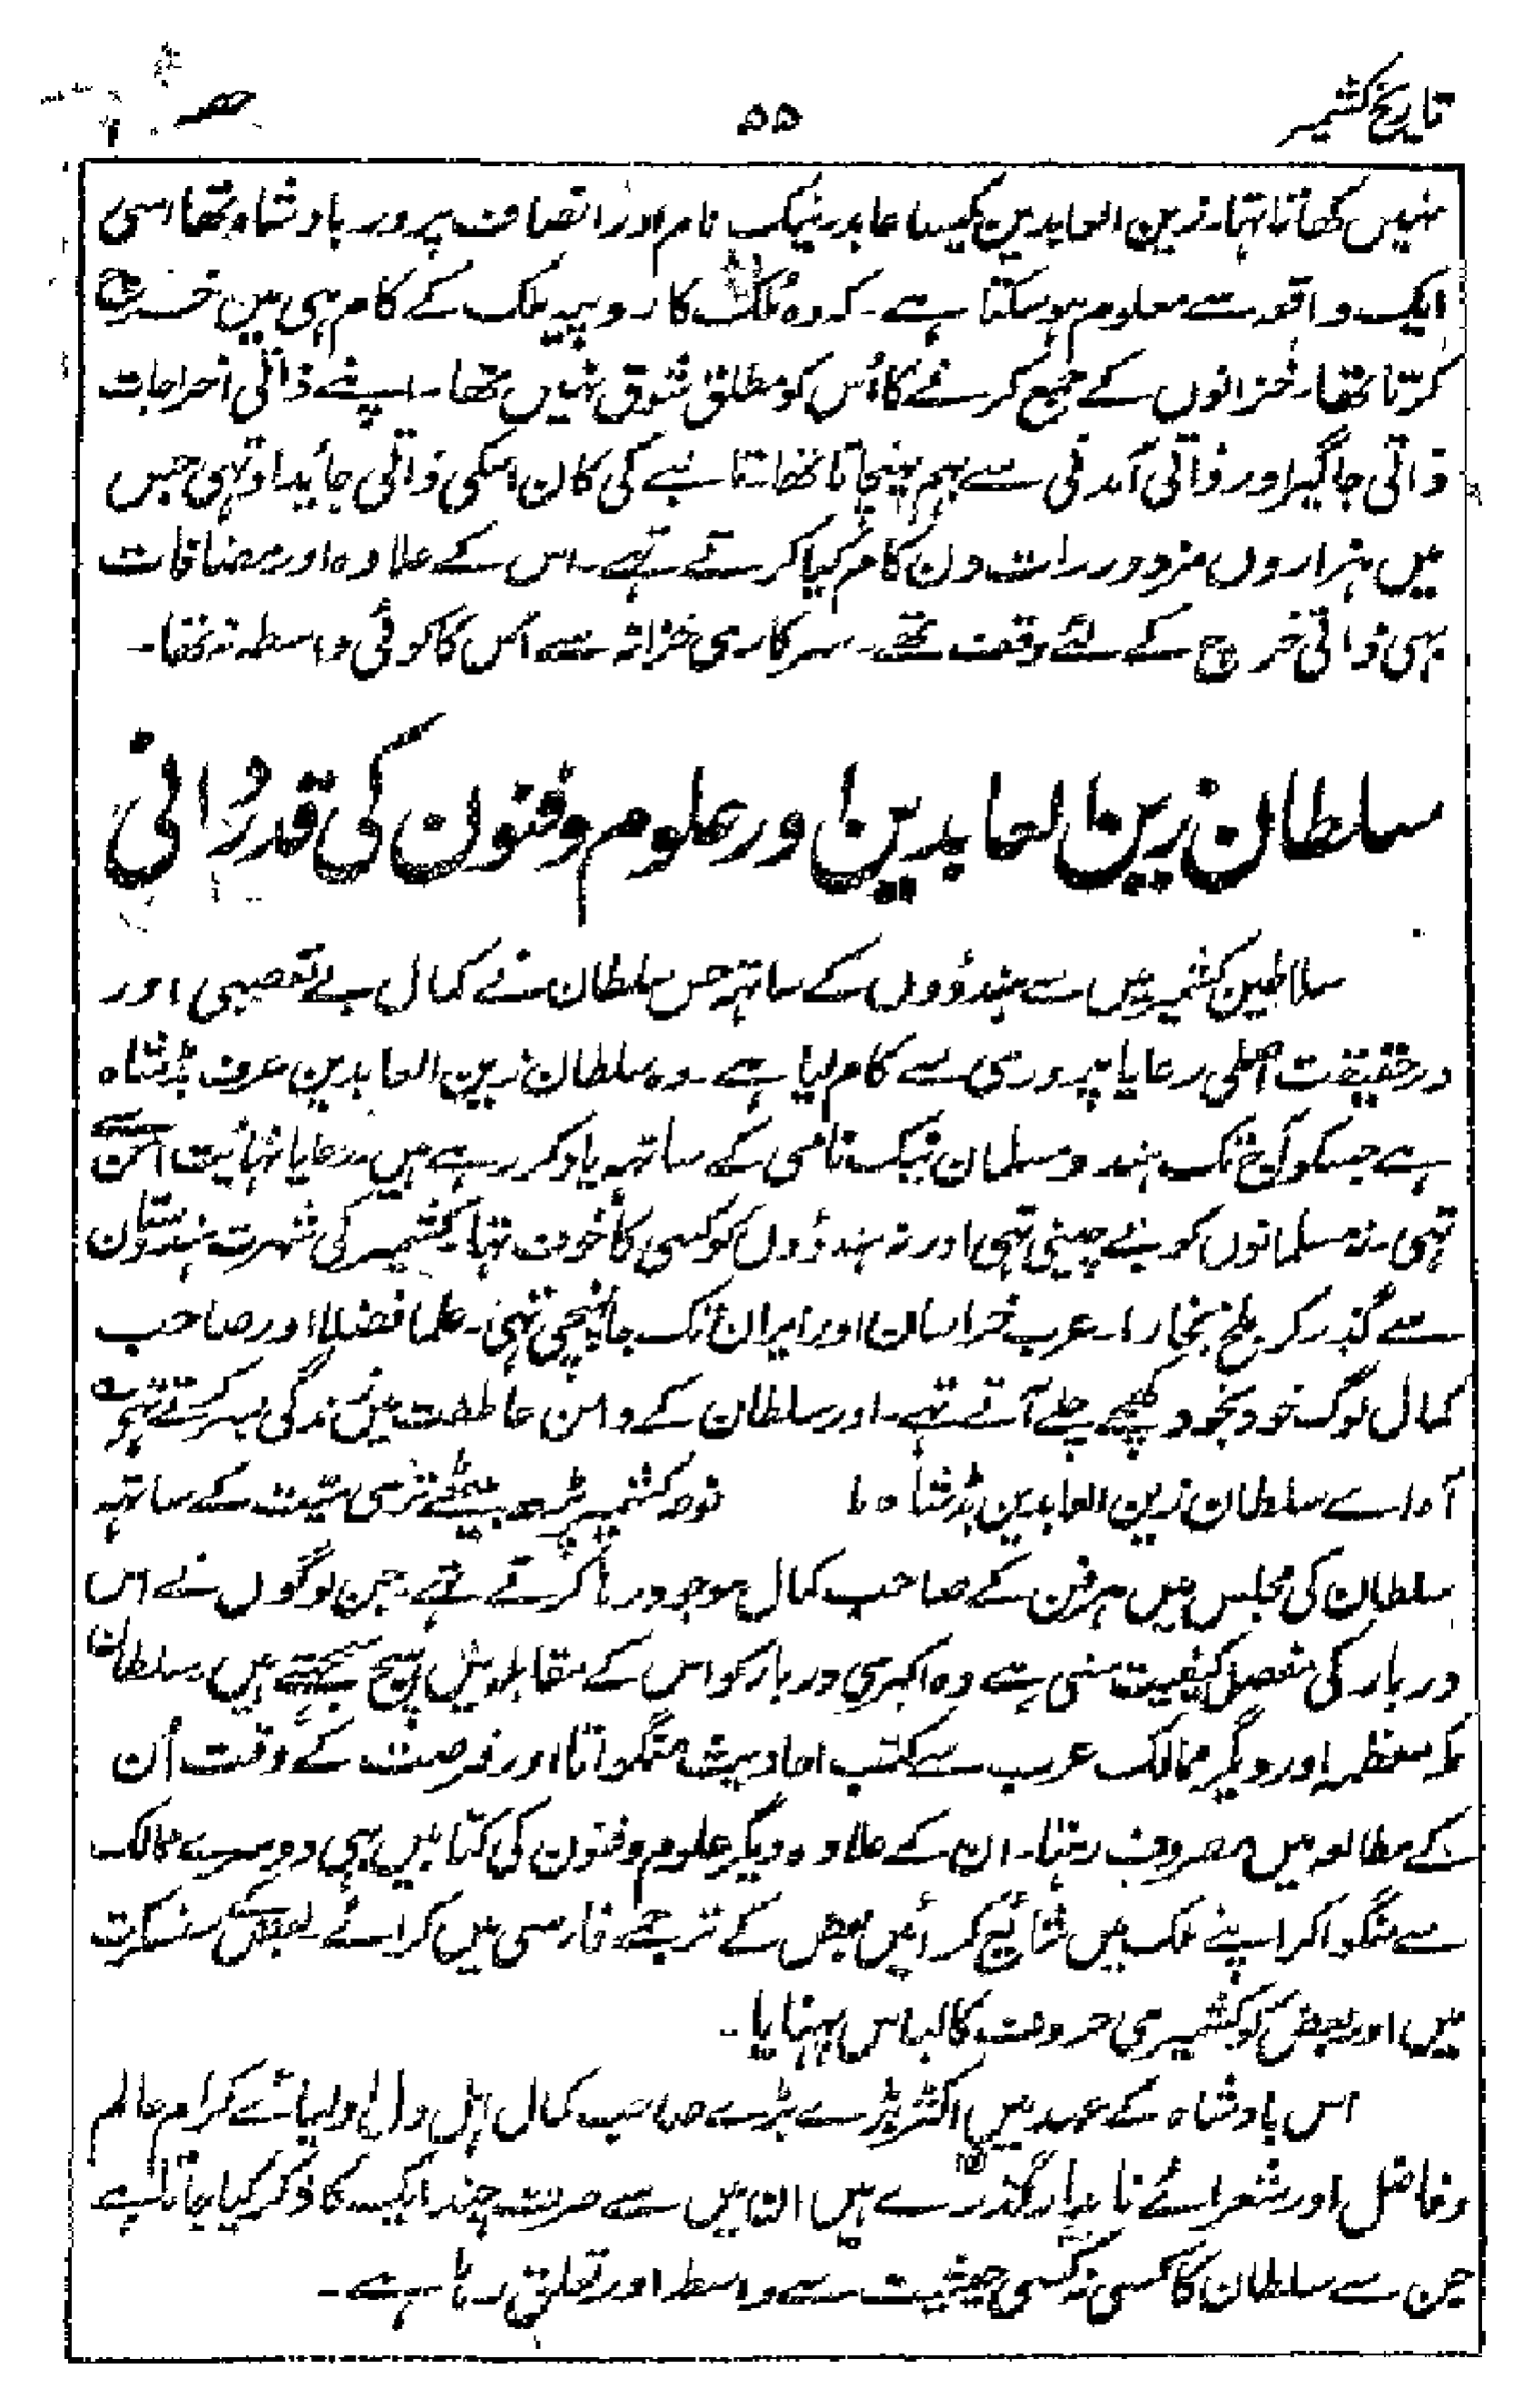 تاریخ کشمیر ۵۵ حصہ
نہیں کھاتا تہا۔ زین العابدین کیسا عابد نیک نام اور انصاف پرور بادشاہ تھا اسی
ایک واقعہ سے معلوم ہوسکتا ہے۔ کہ وہ ملک کا روپیہ ملک کے کام ہی میں خرچ
کرتا تھا۔ خزانوں کے جمع کرنے کا اُس کو مطلق شوق نہیں تھا۔ اپنے ذاتی اخراجات
ذاتی جاگیر اور ذاتی آمدنی سے بہم پہنچاتا تھا تانبے کی کان اسکی ذاتی جائیداد تہی جس
میں ہزاروں مزدور رات دن کام کیا کرتے تہے۔ اس کے علاوہ اور مضافات
بہی ذاتی خرچ کے لئے وقف تھے۔ سرکاری خزانہ سے اس کا کوئی واسطہ نہ تھا۔
سلطان زین العابدین اور علوم و فنون کی قدردانی
سلاطین کشمیر میں سے ہندوؤں کے ساتہہ جس سلطان نے کمال بے تعصبی اور
درحقیقت اصلی رعایا پروری سے کام لیا ہے۔ وہ سلطان زین العابدین عرف بڈشاہ
ہے جسکو آج تک ہندو مسلمان نیک نامی کے ساتہہ یاد کر رہے ہیں رعایا نہائیت امن سے
تہی نہ مسلمانوں کو بے چینی تہی اور نہ ہندوؤں کو کسی کا خوف تہا۔ کشمیر کی شہرت ہندوستان
سے گذر کر بلخ بخارا۔ عرب خراسان اور ایران تک جا پہنچی تہی۔ علما فضلا اور صاحب
کمال لوگ خود بخود کھچے چلے آتے تہے۔ اور سلطان کے دامن عاطفت میں زندگی بسر کرتے تہے
آہ اے سلطان زین العابدین بڈشاہ ما نوحہ کشمیر پڑھ بیٹھے تری میّت کے ساتہہ
سلطان کی مجلس میں ہر فن کے صاحب کمال موجود رہا کرتے تہے۔ جن لوگوں نے اس
دربار کی مفصل کیفیت سنی ہے وہ اکبری دربار کو اس کے مقابلہ میں ہیچ سمجہتے ہیں۔ سلطان
مکہ معظمہ اور دیگر ممالک عرب سے کتب احادیث منگواتا اور فرصت کے وقت اُن
کے مطالعہ میں مصروف رہتا۔ ان کے علاوہ دیگر علوم و فنون کی کتابیں بہی دوسرے ممالک
سے منگواکر اپنے ملک میں شائع کرائیں بعض کے ترجمے فارسی میں کرائے۔ بعض کے سنسکرت
میں اور بعض کو کشمیری حروف کا لباس پہنایا۔
اس بادشاہ کے عہد میں اکثر بڑے بڑے صاحب کمال اہل دل اولیائے کرام عالم
و فاضل اور شعرائے نامدار گذرے ہیں ان میں سے صرف چند ایک کا ذکر کیا جاتا ہے
جن سے سلطان کا کسی نہ کسی حیثیت سے واسطہ اور تعلق رہا ہے۔